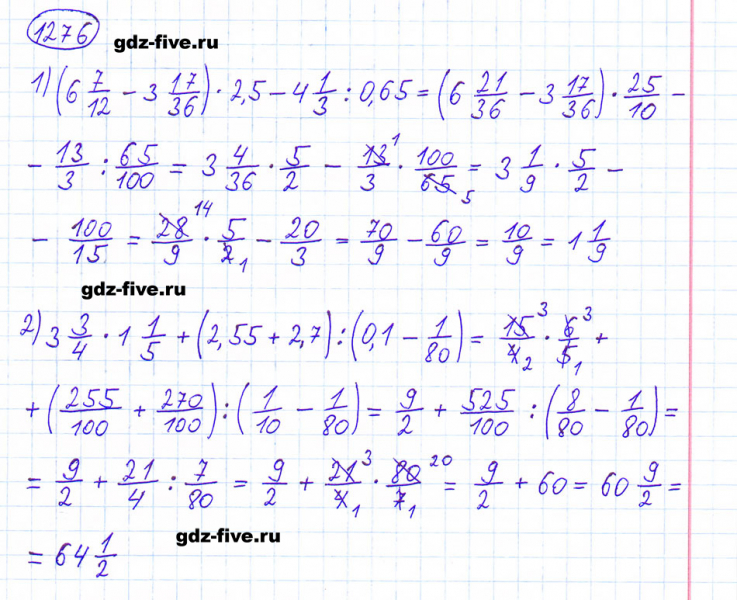 1276
gdz-five.ru
1) (6 7/12 - 3 17/36) · 2,5 - 4 1/3 : 0,65 = (6 21/36 - 3 17/36) · 25/10 -
- 13/3 : 65/100 = 3 4/36 · 5/2 - 13 1/3 · 100/65 5 = 3 1/9 · 5/2 -
- 100/15 = 28 14/9 · 5/2 1 - 20/3 = 70/9 - 60/9 = 10/9 = 1 1/9
gdz-five.ru
2) 3 3/4 · 1 1/5 + (2,55 + 2,7) : (0,1 - 1/80) = 15 3/4 2 · 6 3/5 1 +
+ (255/100 + 270/100) : (1/10 - 1/80) = 9/2 + 525/100 : (8/80 - 1/80) =
= 9/2 + 21/4 : 7/80 = 9/2 + 21 3/4 1 · 80 20/7 1 = 9/2 + 60 = 60 9/2 =
gdz-five.ru
= 64 1/2